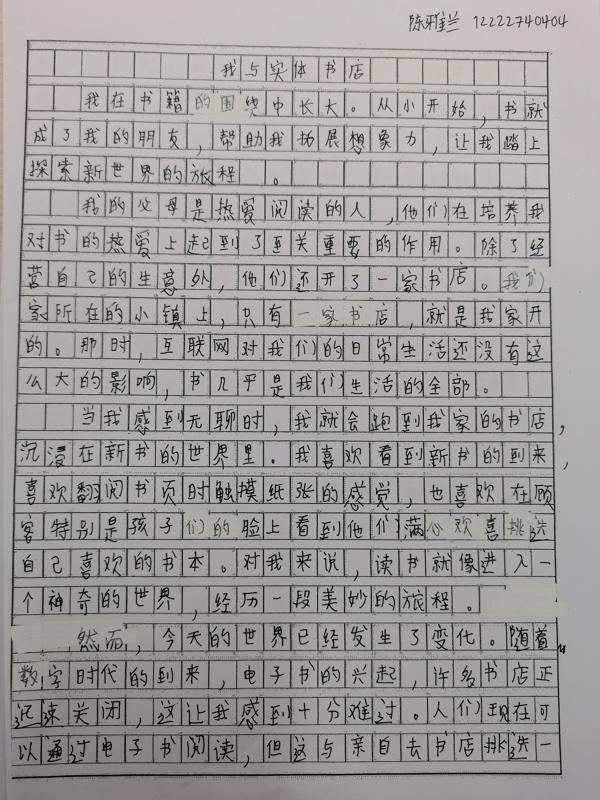 陈雅兰 12222740404
我与实体书店
我在书籍的围绕中长大。从小开始，书就
成了我的朋友，帮助我拓展想象力，让我踏上
探索新世界的旅程。
我的父母是热爱阅读的人，他们在培养我
对书的热爱上起到了至关重要的作用。除了经
营自己的生意外，他们还开了一家书店。我们
家所在的小镇上，只有一家书店，就是我家开
的。那时，互联网对我们的日常生活还没有这
么大的影响，书几乎是我们生活的全部。
当我感到无聊时，我就会跑到我家的书店，
沉浸在新书的世界里。我喜欢看到新书的到来，
喜欢翻阅书页时触摸纸张的感觉，也喜欢在顾
客特别是孩子们的脸上看到他们满心欢喜挑选
自己喜欢的书本。对我来说，读书就像进入一
个神奇的世界，经历一段美妙的旅程。
然而，今天的世界已经发生了变化。随着
数字时代的到来，电子书的兴起，许多书店正
迅速关闭，这让我感到十分难过。人们现在可
以通过电子书阅读，但这与亲自去书店挑选一